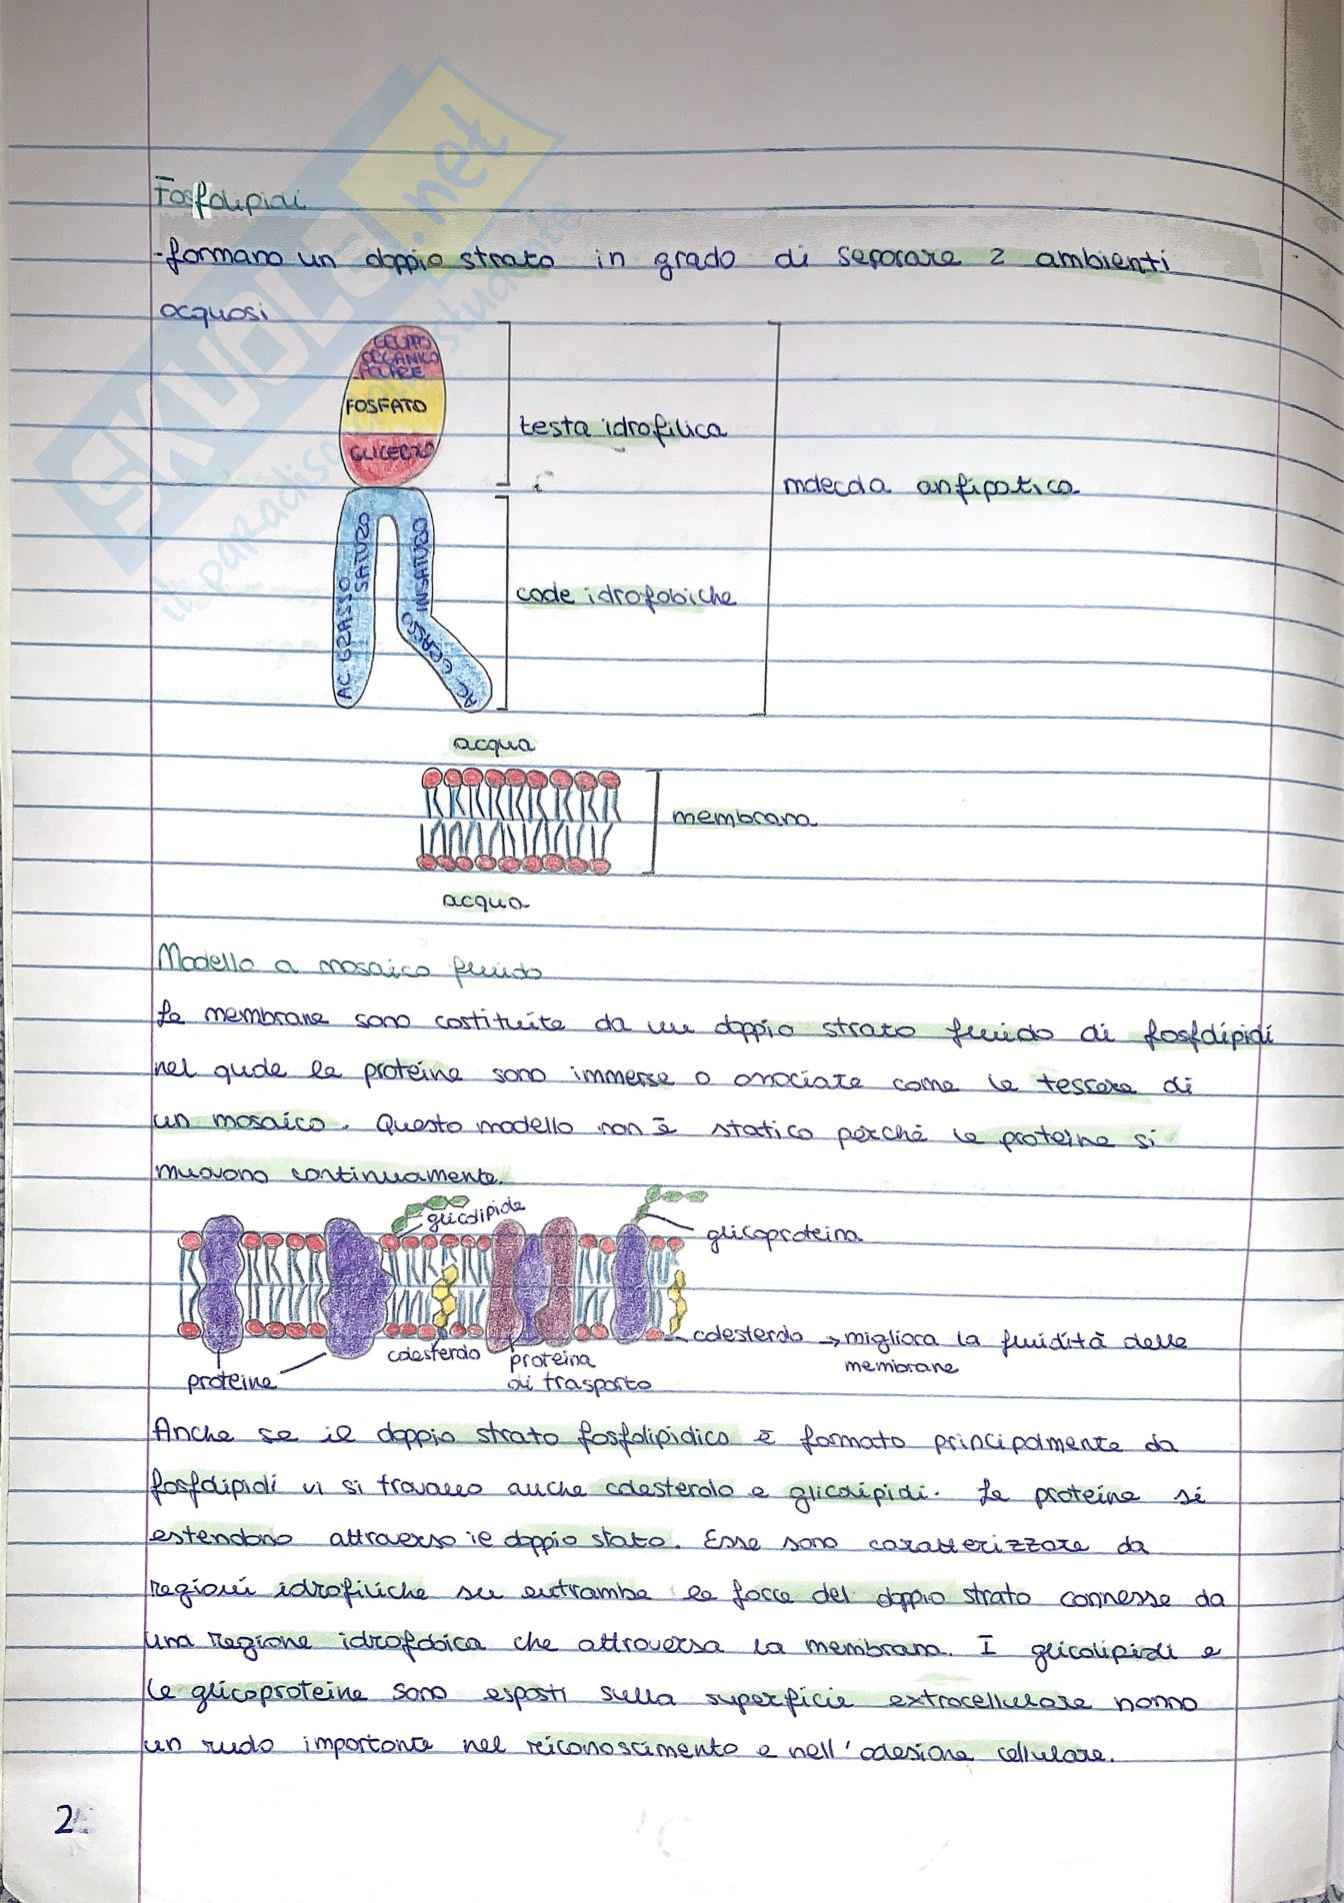 Fosfolipidi
- formano un doppio strato in grado di separare 2 ambienti
acquosi
GRUPPO
ORGANICO
POLARE
FOSFATO
GLICEROLO
testa idrofilica
molecola anfipatica
AC GRASSO SATURO
AC GRASSO INSATURO
code idrofobiche
acqua
membrana
acqua
Modello a mosaico fluido
Le membrane sono costituite da un doppio strato fluido di fosfolipidi
nel quale le proteine sono immerse o associate come le tessere di
un mosaico. Questo modello non è statico perché le proteine si
muovono continuamente.
glicolipide
glicoproteina
colesterolo
proteina
di trasporto
colesterolo → migliora la fluidità delle
membrane
proteine
Anche se il doppio strato fosfolipidico è formato principalmente da
fosfolipidi vi si trovano anche colesterolo e glicolipidi. Le proteine si
estendono attraverso il doppio stato. Esse sono caratterizzare da
regioni idrofiliche su entrambe le facce del doppio strato connesse da
una regione idrofobica che attraversa la membrana. I glicolipidi e
le glicoproteine sono esposti sulla superficie extracellulare hanno
un ruolo importante nel riconoscimento e nell'adesione cellulare.
2
SKUOLA.net
il paradiso dello studente